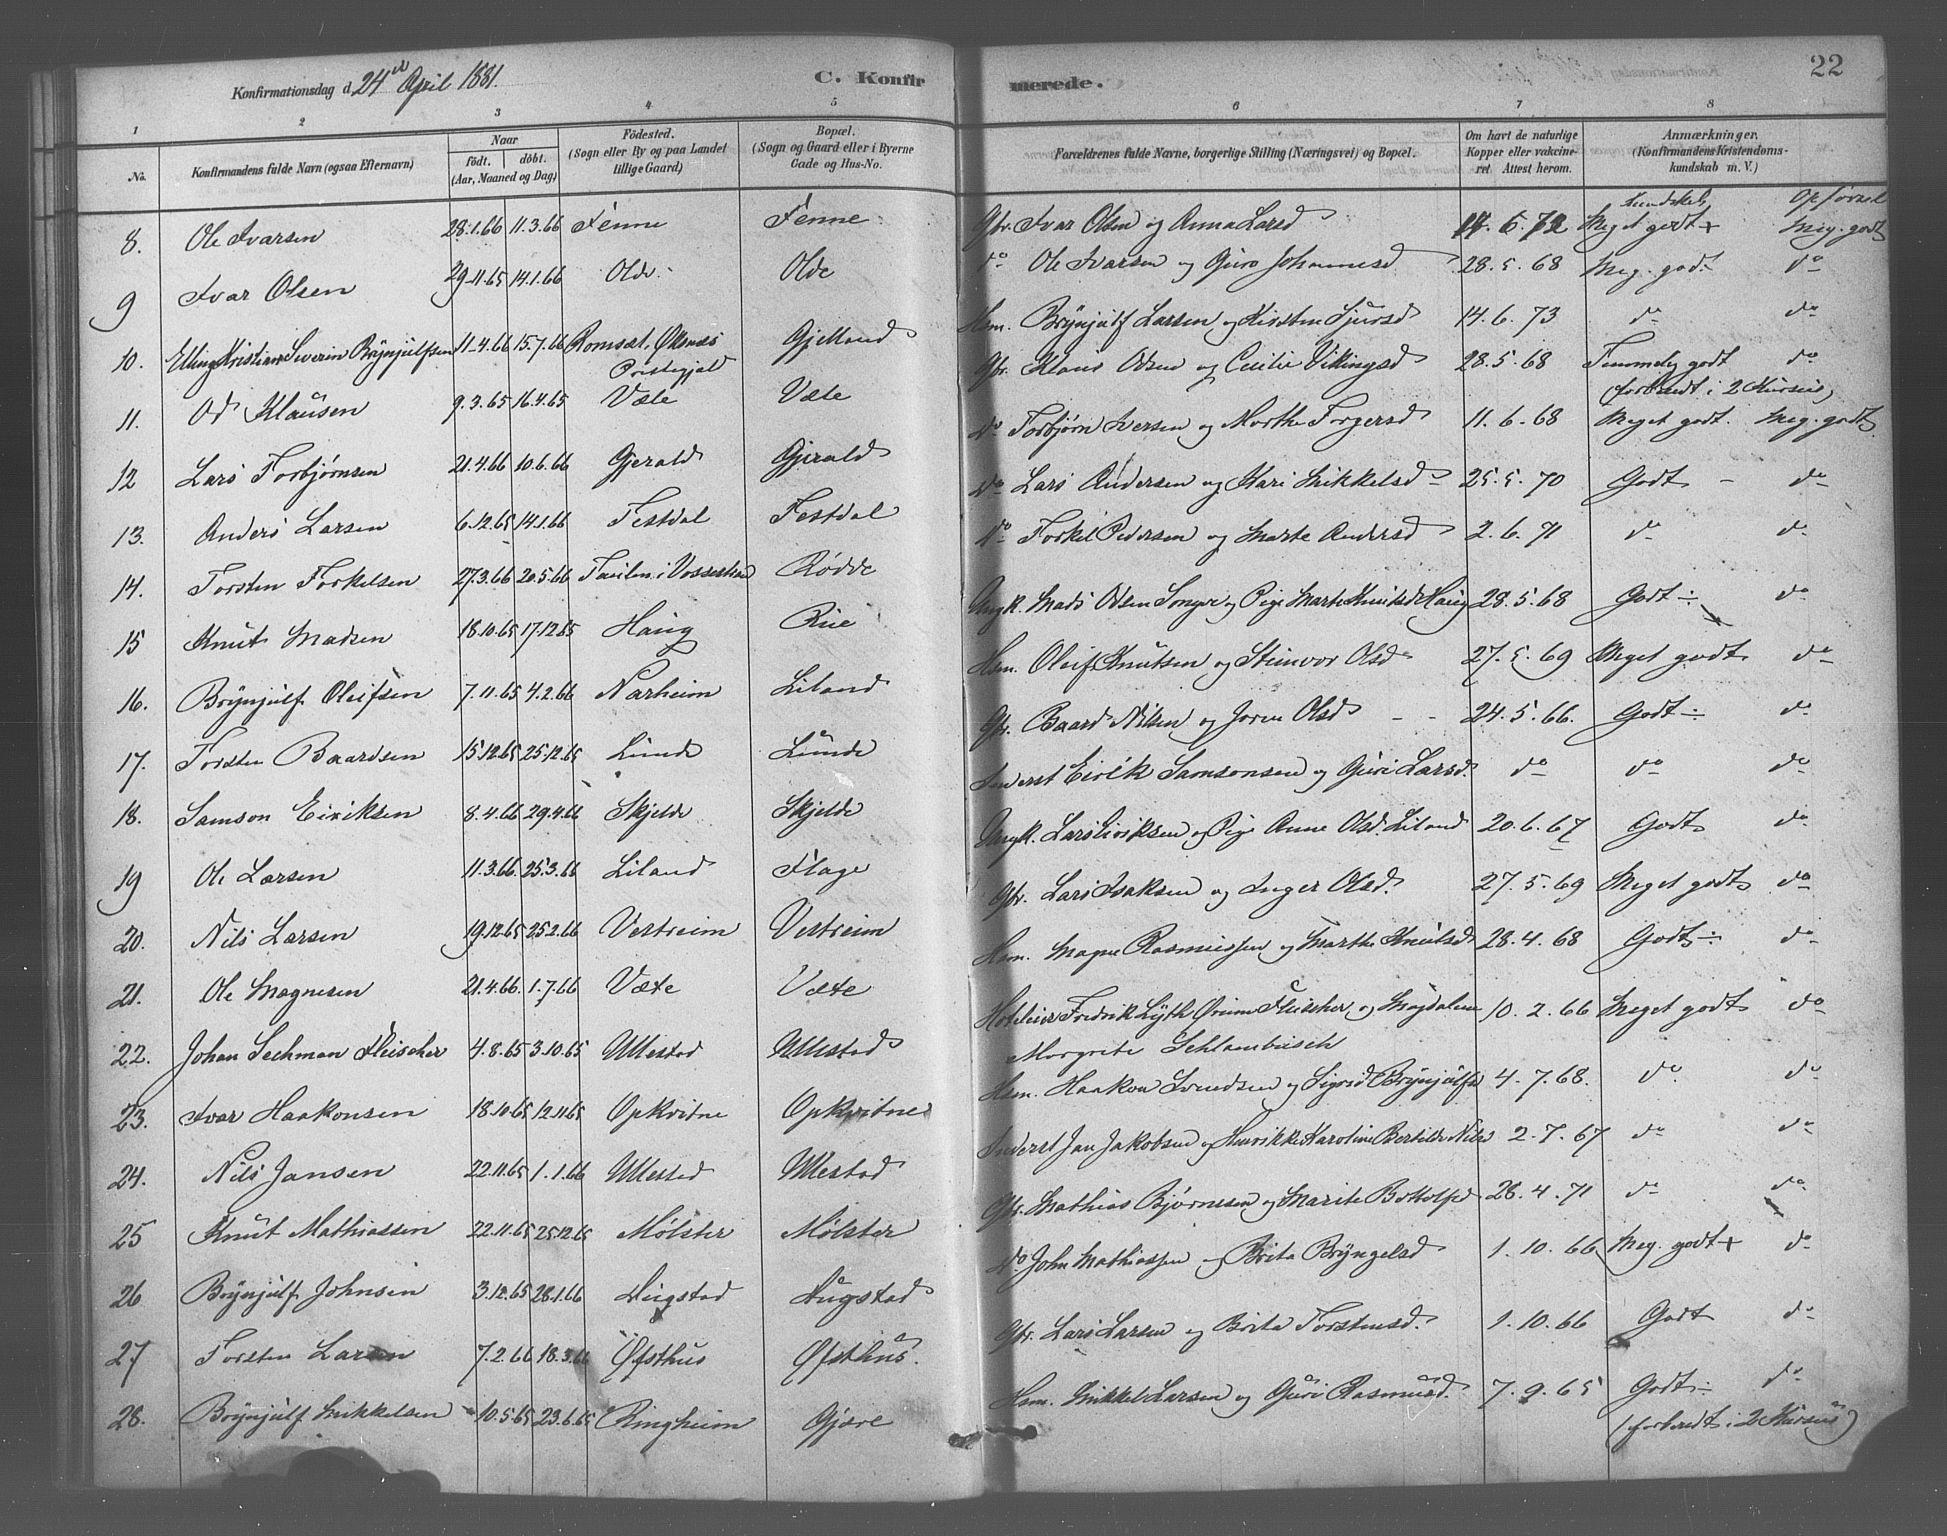 Konfirmationsdag d. 24de April 1881.
C. Konfirmerede.
22
1 2 3 4 5 6 7 8
No. Konfirmandens fulde Navn (ogsaa Efternavn)
Naar födt. döbt. (Aar, Maaned og Dag)
Födested. (Sogn eller By og paa Landet tillige Gaard)
Bopæl. (Sogn og Gaard eller i Byerne Gade og Hus-No.
Forældrenes fulde Navne, borgerlige Stilling (Næringsvei) og Bopæl.
Om havt de naturlige Kopper eller vakcineret Attest herom.
Anmærkninger. (Konfirmandens Kristendomskundskab m. V.)
Kundskab Opførsel
8. Ole Ivarsen 28.1.66 11.3.66 Tenne Tenne Gbr. Ivar Olsen og Anna Larsd 14.6.72 Meget godt + Meg. godt
9 Ivar Olsen 29.11.65 14.1.66 Olde Olde do Ole Ivarsen og Guro Johannesd 28.5.68 Meg. godt do
10. Elling Kristian Severin Brynjulfsen 11.4.66 15.7.66 Romsat. Øksnæs Præstegjæld Gjelland Hsm. Brynjulf Larsen og Kirsten Sjursd 14.6.73 do do
11. Od Klausen 9.3.65 16.4.65 Væte Væte Gbr. Klaus Odsen og Cecilie Vikingsd 28.5.68 Temmelig godt do
(forberedt i 2 Kursus)
12 Lars Torbjørnsen 21.4.66 10.6.66 Gjerald Gjerald do Torbjørn Iversen og Marthe Torgersd 11.6.68 Meget godt. Meg. godt
13. Anders Larsen 6.12.65 14.1.66 Festdal Festdal do Lars Andersen og Kari Mikkelsd 25.5.70 Godt do
14. Torsten Torkelsen 27.3.66 20.5.66 i Vossestrand Rødde do Torkel Pedersen og Marte Andersd 2.6.71 do do
15 Knut Madsen 18.10.65 17.12.65 Haug Rue Ungk. Mads Odsen og Pige Marte Knutsd Haug 28.5.68 Godt ÷ do
16. Brynjulf Oleifsen 7.11.65 4.2.66 Narheim Liland Hsm. Oleif Knutsen og Steinvor Olsd 27.5.69 Meget godt do
17. Torsten Baardsen 15.12.65 25.12.65 Lunde Lunde Gbr. Baard Nilsen og Joren Olsd 24.5.66. Godt ÷ do
18. Samson Eiriksen 8.4.66 29.4.66 Skjelde Skjelde Inderst Eirik Samsonsen og Guri Larsd. do do do
19 Ole Larsen 11.3.66. 25.3.66 Liland Flage Ungk. Lars Eiriksen og Pige Anne Olsd. Liland 20.6.67 Godt do
20. Nils Larsen 19.12.65 25.2.66 Vestreim Vestreim Gbr. Lars Isaksen og Inger Olsd. 27.5.69 Meget godt do
21. Ole Magnesen 21.4.66. 1.7.66 Væte Væte Hsm. Magne Rasmussen og Marthe Knutsd 28.4.68 Godt ÷ do
22. Johan Sechman Fleischer 4.8.65 3.10.65 Ullestad Ullestad Hoteleier Fredrik Lyth Ørum Fleischer og Magdalena 10.2.66 Meget godt do
Margrete Schlambusch
23. Ivar Haakonsen 18.10.65 12.11.65 Opkvitne Opkvitne Hsm. Haakon Svendsen og Sigrid Brynjulfsd 4.7.68. do. do
24. Nils Jansen 22.11.65 1.1.66 Ullestad Ullestad Inderst Jan Jakobsen og Henrikke Karoline Bertilde Nilsd 2.7.67 do do
25 Knut Mathiassen 22.11.65 25.12.65 Mølster Mølster Gbr. Mathias Bjørnesen og Marite Botolfsd 28.4.71 do do
26 Brynjulf Johnsen 3.12.65 28.1.66 Hugstad Hugstad do John Mathiassen og Brita Bryngelsd 1.10.66 Meg. godt + do
27 Torsten Larsen 7.2.66 18.3.66 Øfsthus Øfsthus. Gbr. Lars Larsen og Brita Torstensd. 1.10.66 Godt do
28. Brynjulf Mikkelsen 10.5.65 23.6.65 Ringheim Gjære Hsm. Mikkel Larsen og Guri Rasmusd. 7.9.65 Godt ÷ do
(forberedt i 2 Kursus)